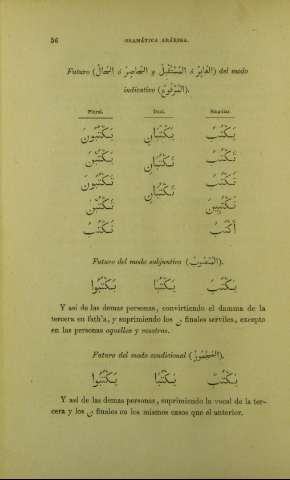 56 GRAMÁTICA ARÁBIGA.
Futuro (اَلْغَابِرُ ، اَلْمُسْتَقْبَلُ ، اَلْحَاضِرُ ، اَلْحَالُ) del modo
indicativo (اَلْمَرْفُوعُ).
Plural. Dual. Singular.
يَكْتُبُونَ يَكْتُبَانِ يَكْتُبُ
يَكْتُبْنَ تَكْتُبَانِ تَكْتُبُ
تَكْتُبُونَ تَكْتُبَانِ تَكْتُبُ
تَكْتُبْنَ تَكْتُبِينَ
نَكْتُبُ أَكْتُبُ
Futuro del modo subjuntivo (اَلْمَنْصُوبُ).
يَكْتُبُوا يَكْتُبَا يَكْتُبَ
Y así de las demas personas, convirtiendo el damma de la
tercera en fath'a, y suprimiendo los ن finales serviles, excepto
en las personas aquellas y vosotras.
Futuro del modo condicional (اَلْمَجْزُومُ).
يَكْتُبُوا يَكْتُبَا يَكْتُبْ
Y así de las demas personas, suprimiendo la vocal de la ter-
cera y los ن finales en los mismos casos que el anterior.